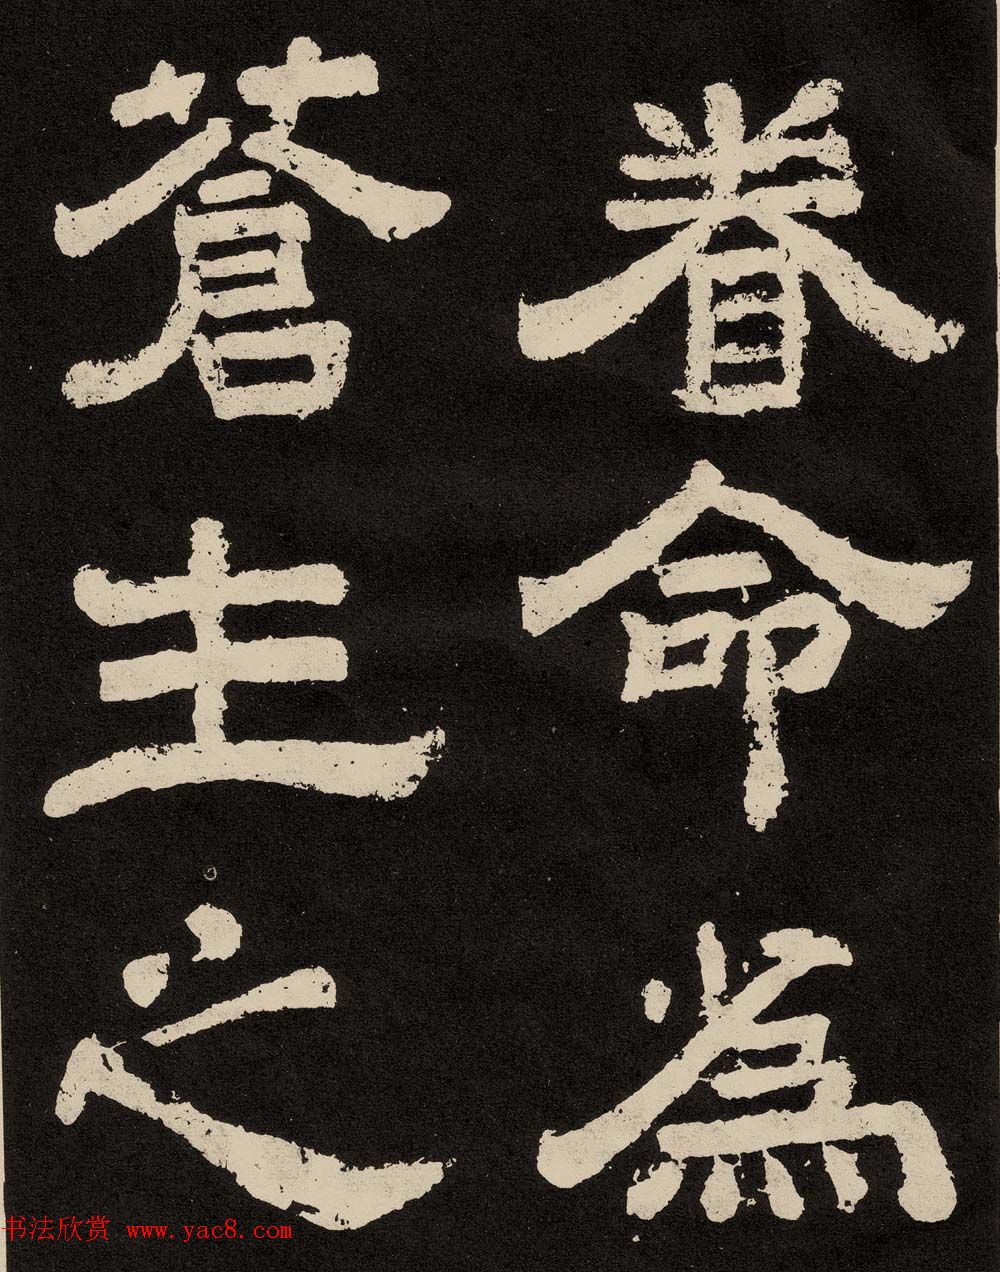 眷命為
蒼主之
书法欣赏 www.yac8.com